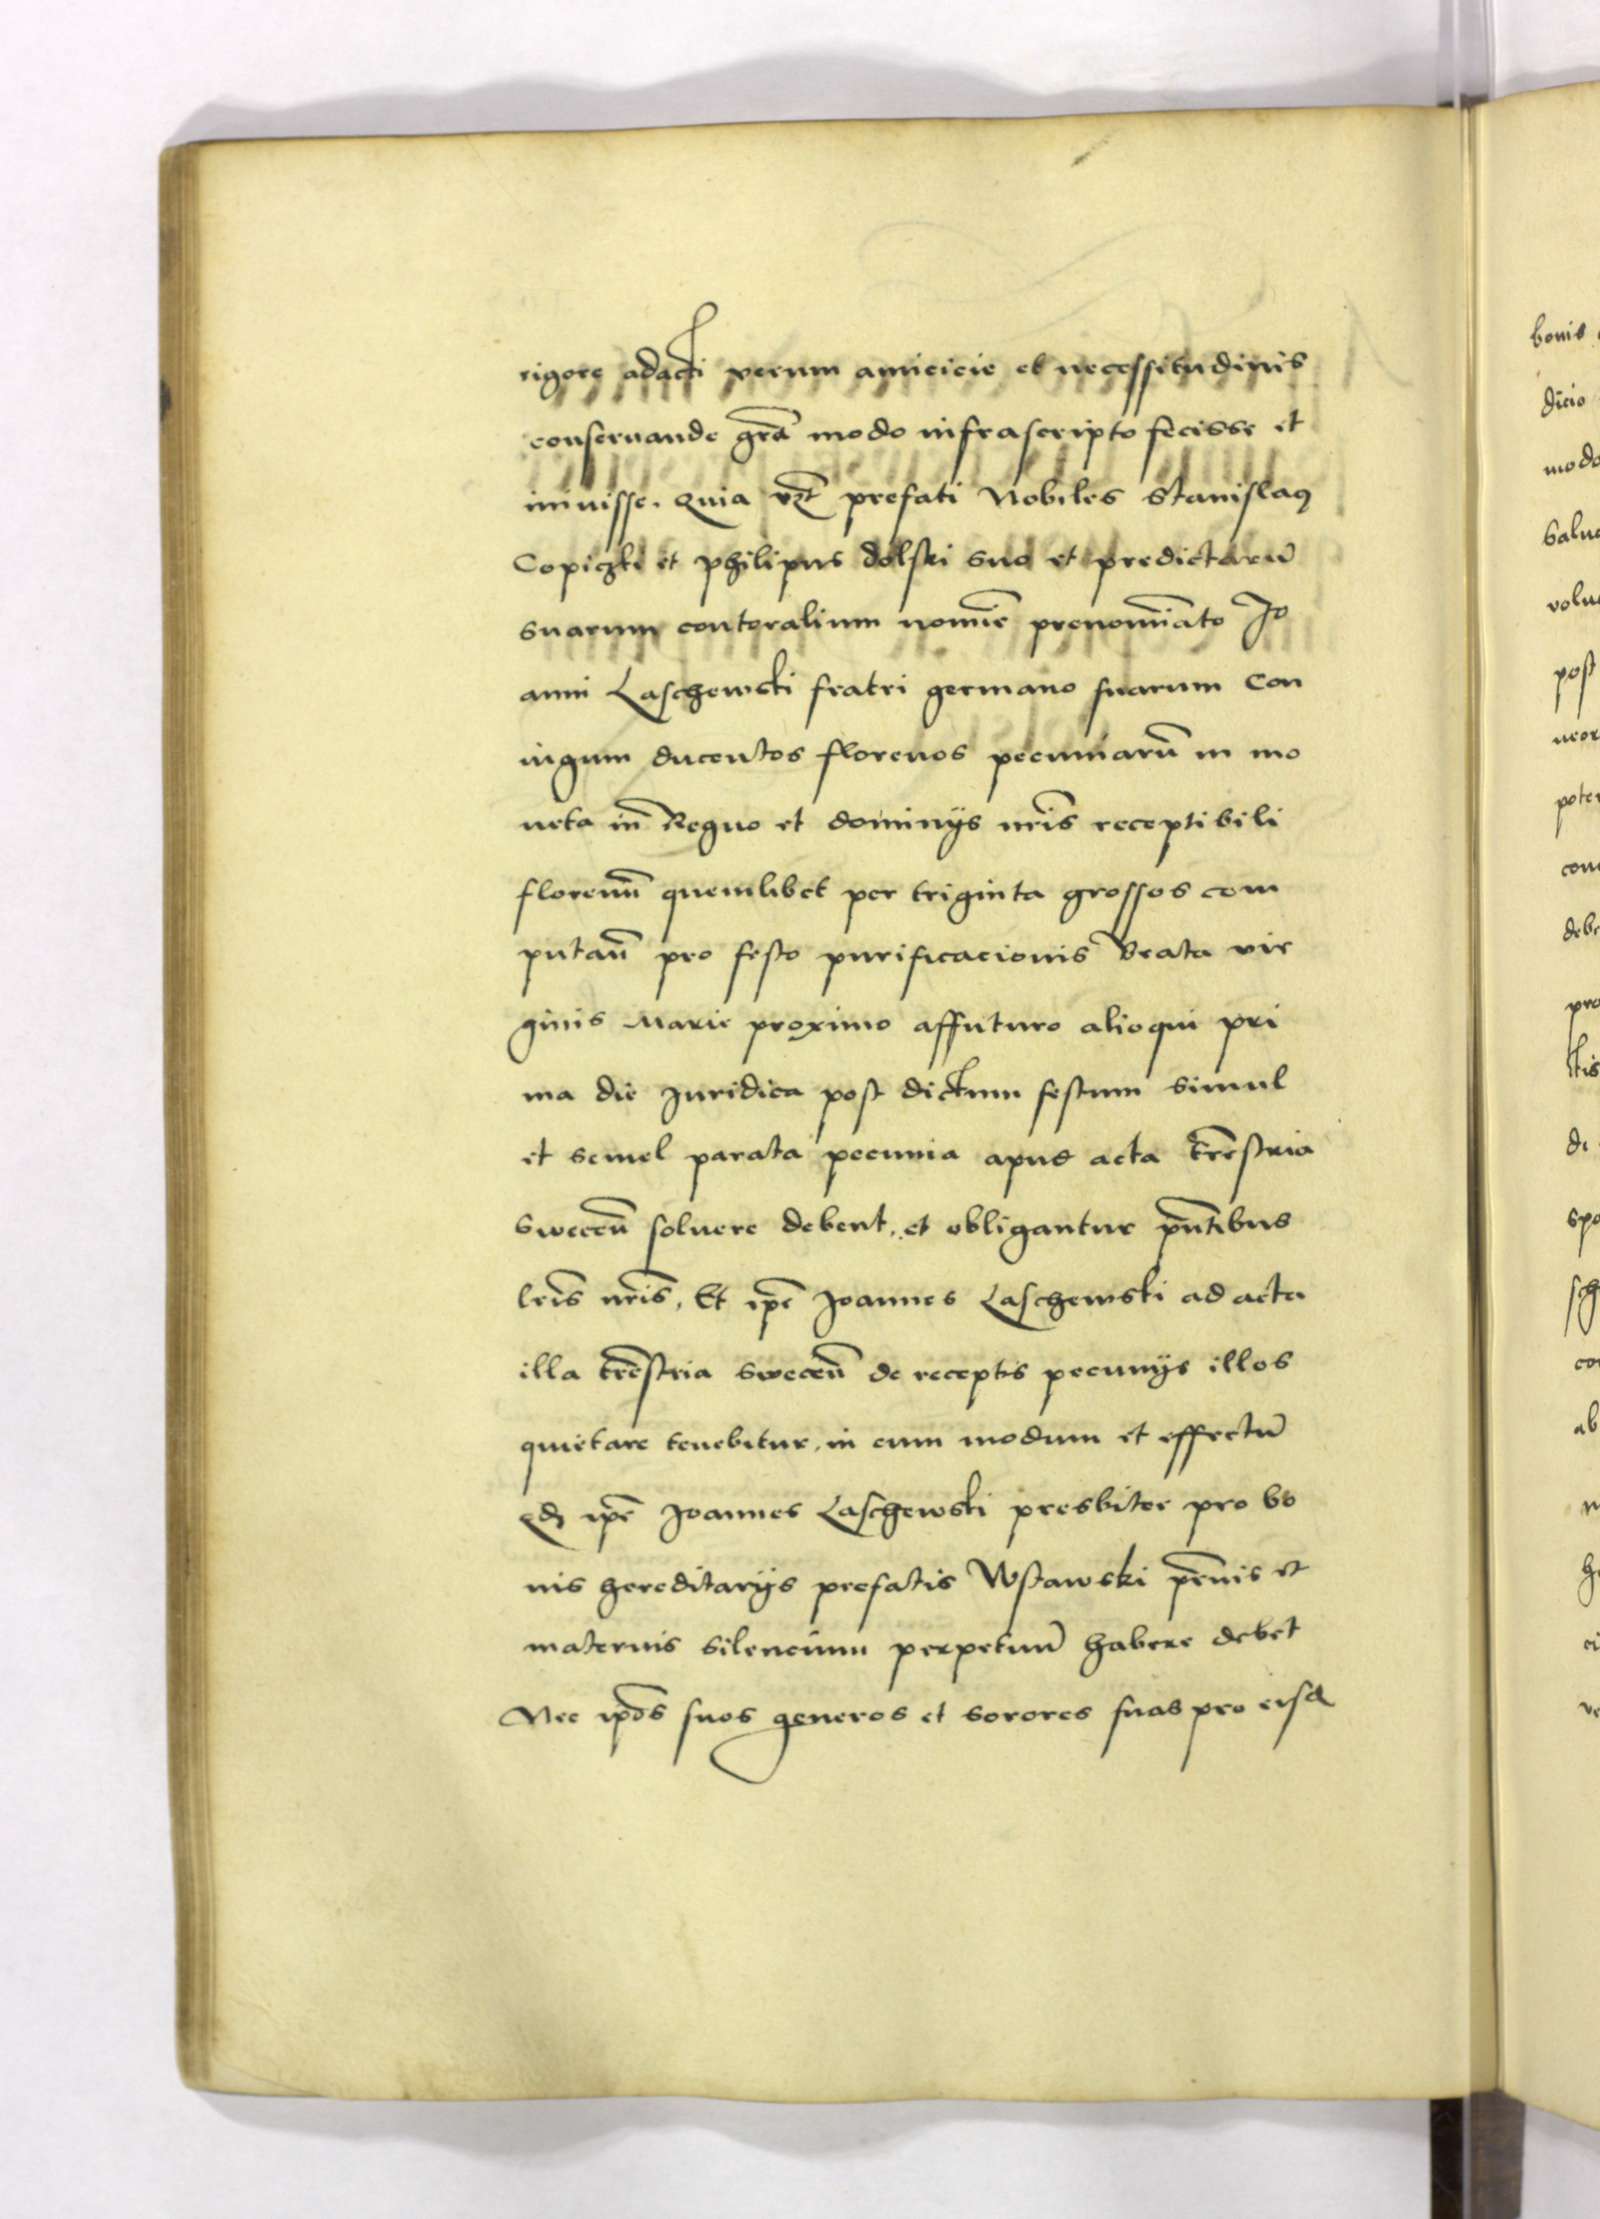 rigore adacti verum amicicie et necessitudinis
conseruande grã modo infrascripto fecisse et
iniuisse. Quia vꝫt prefati Nobiles Stanislaꝰ
Copiczki et Philipus dolski suo et predictarũ
suarum contoralium nomĩe prenomĩato Jo
anni Laschewski fratri germano suarum Con
iugum ducentos florenos pecuniarũ in mo
neta in Regno et dominijs nrĩs receptibili
florenũ quemlibet per triginta grossos com
putañ pro festo purificacionis Beata vir
ginis Marie proximo affuturo alioqui pri
ma die Juridica post dictum festum simul
et semel parata pecunia apud acta trẽstria
Sweceñ soluere debent, et obligantur pñtibus
lrĩs nrĩs, Et ipẽ Joannes Laschewski ad acta
illa trẽstria Sweceñ de receptis pecunijs illos
quietare tenebitur, in eum modum et effectũ
qđ ipẽ Joannes Laschewski presbiter pro bo
nis hereditarijs prefatis Wstawski pẽnis et
maternis silencium perpetuũ habere debet
Nec ipõs suos generos et sorores suas pro eisđ
bonis
dicio
modo
salu
volu
post
neor
poter
con
debe
pro
ctis
di
spo
sch
con
ab
he
ci
ve